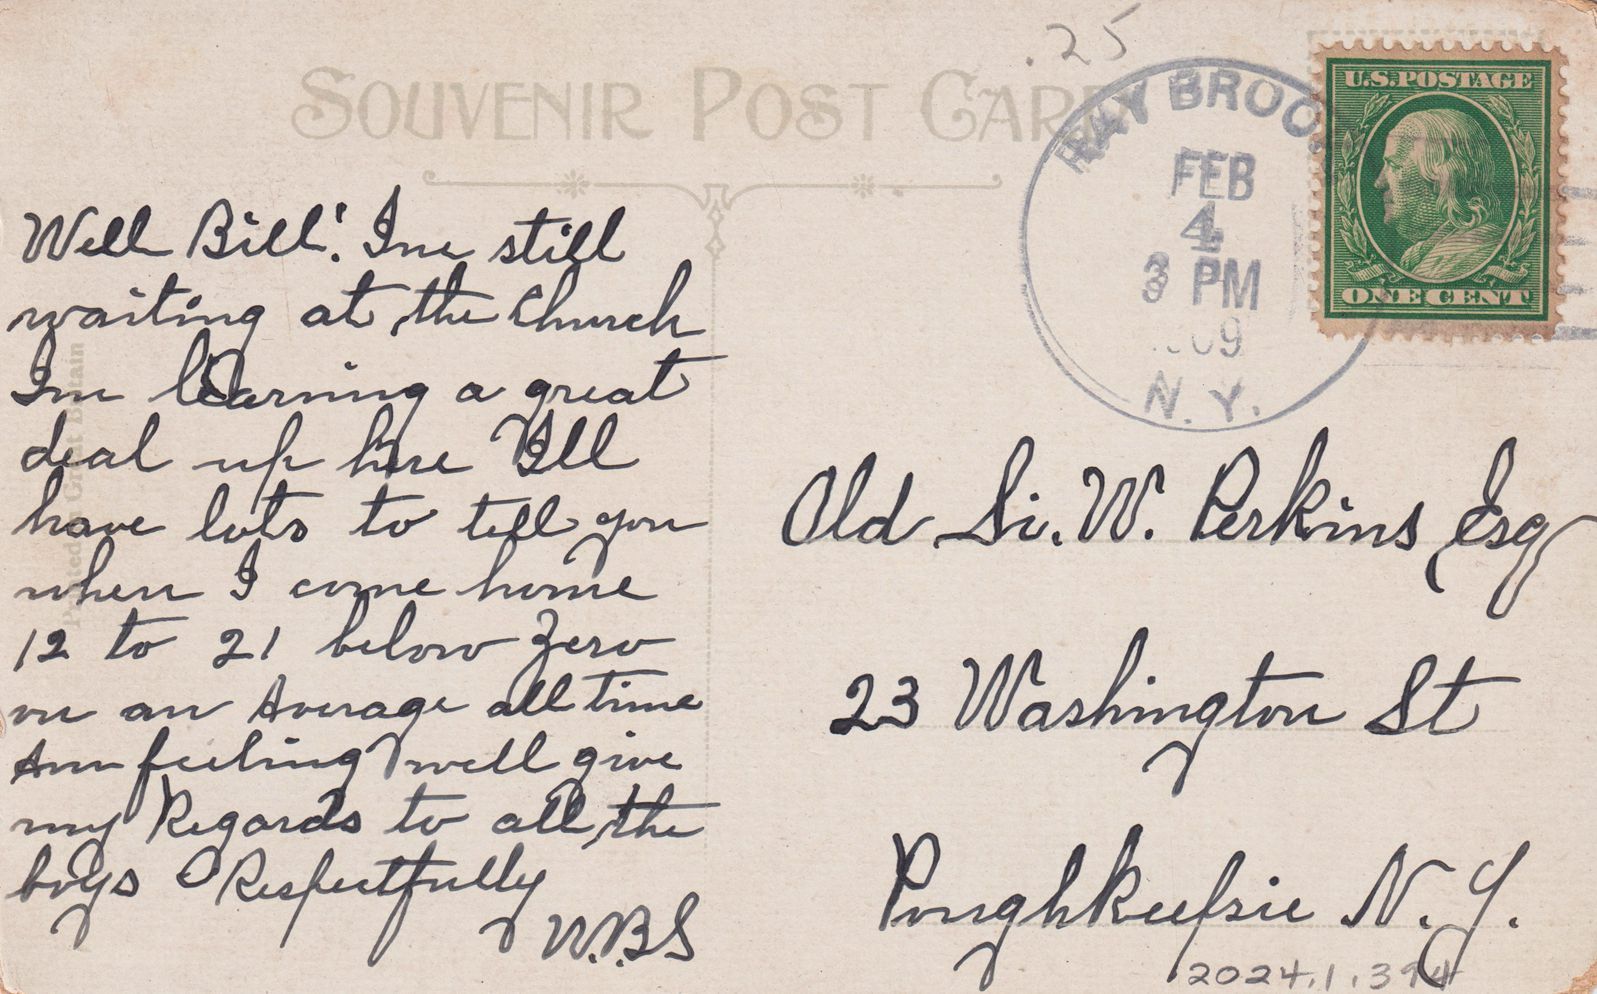 .25
SOUVENIR POST CARD
RAY BROOK
FEB
4
3 PM
1909
N.Y.
U.S. POSTAGE
ONE CENT
Well Bill! Ime still
waiting at the Church
Ime learning a great
deal up here I'll
have lots to tell you
when I come home
12 to 21 below zero
on an Average all time
Am feeling well give
my Regards to all the
boys Respectfully
W.B.S
Printed in Great Britain
Old Si. W. Perkins Esq
23 Washington St
Poughkeepsie N.Y.
2024.1.394